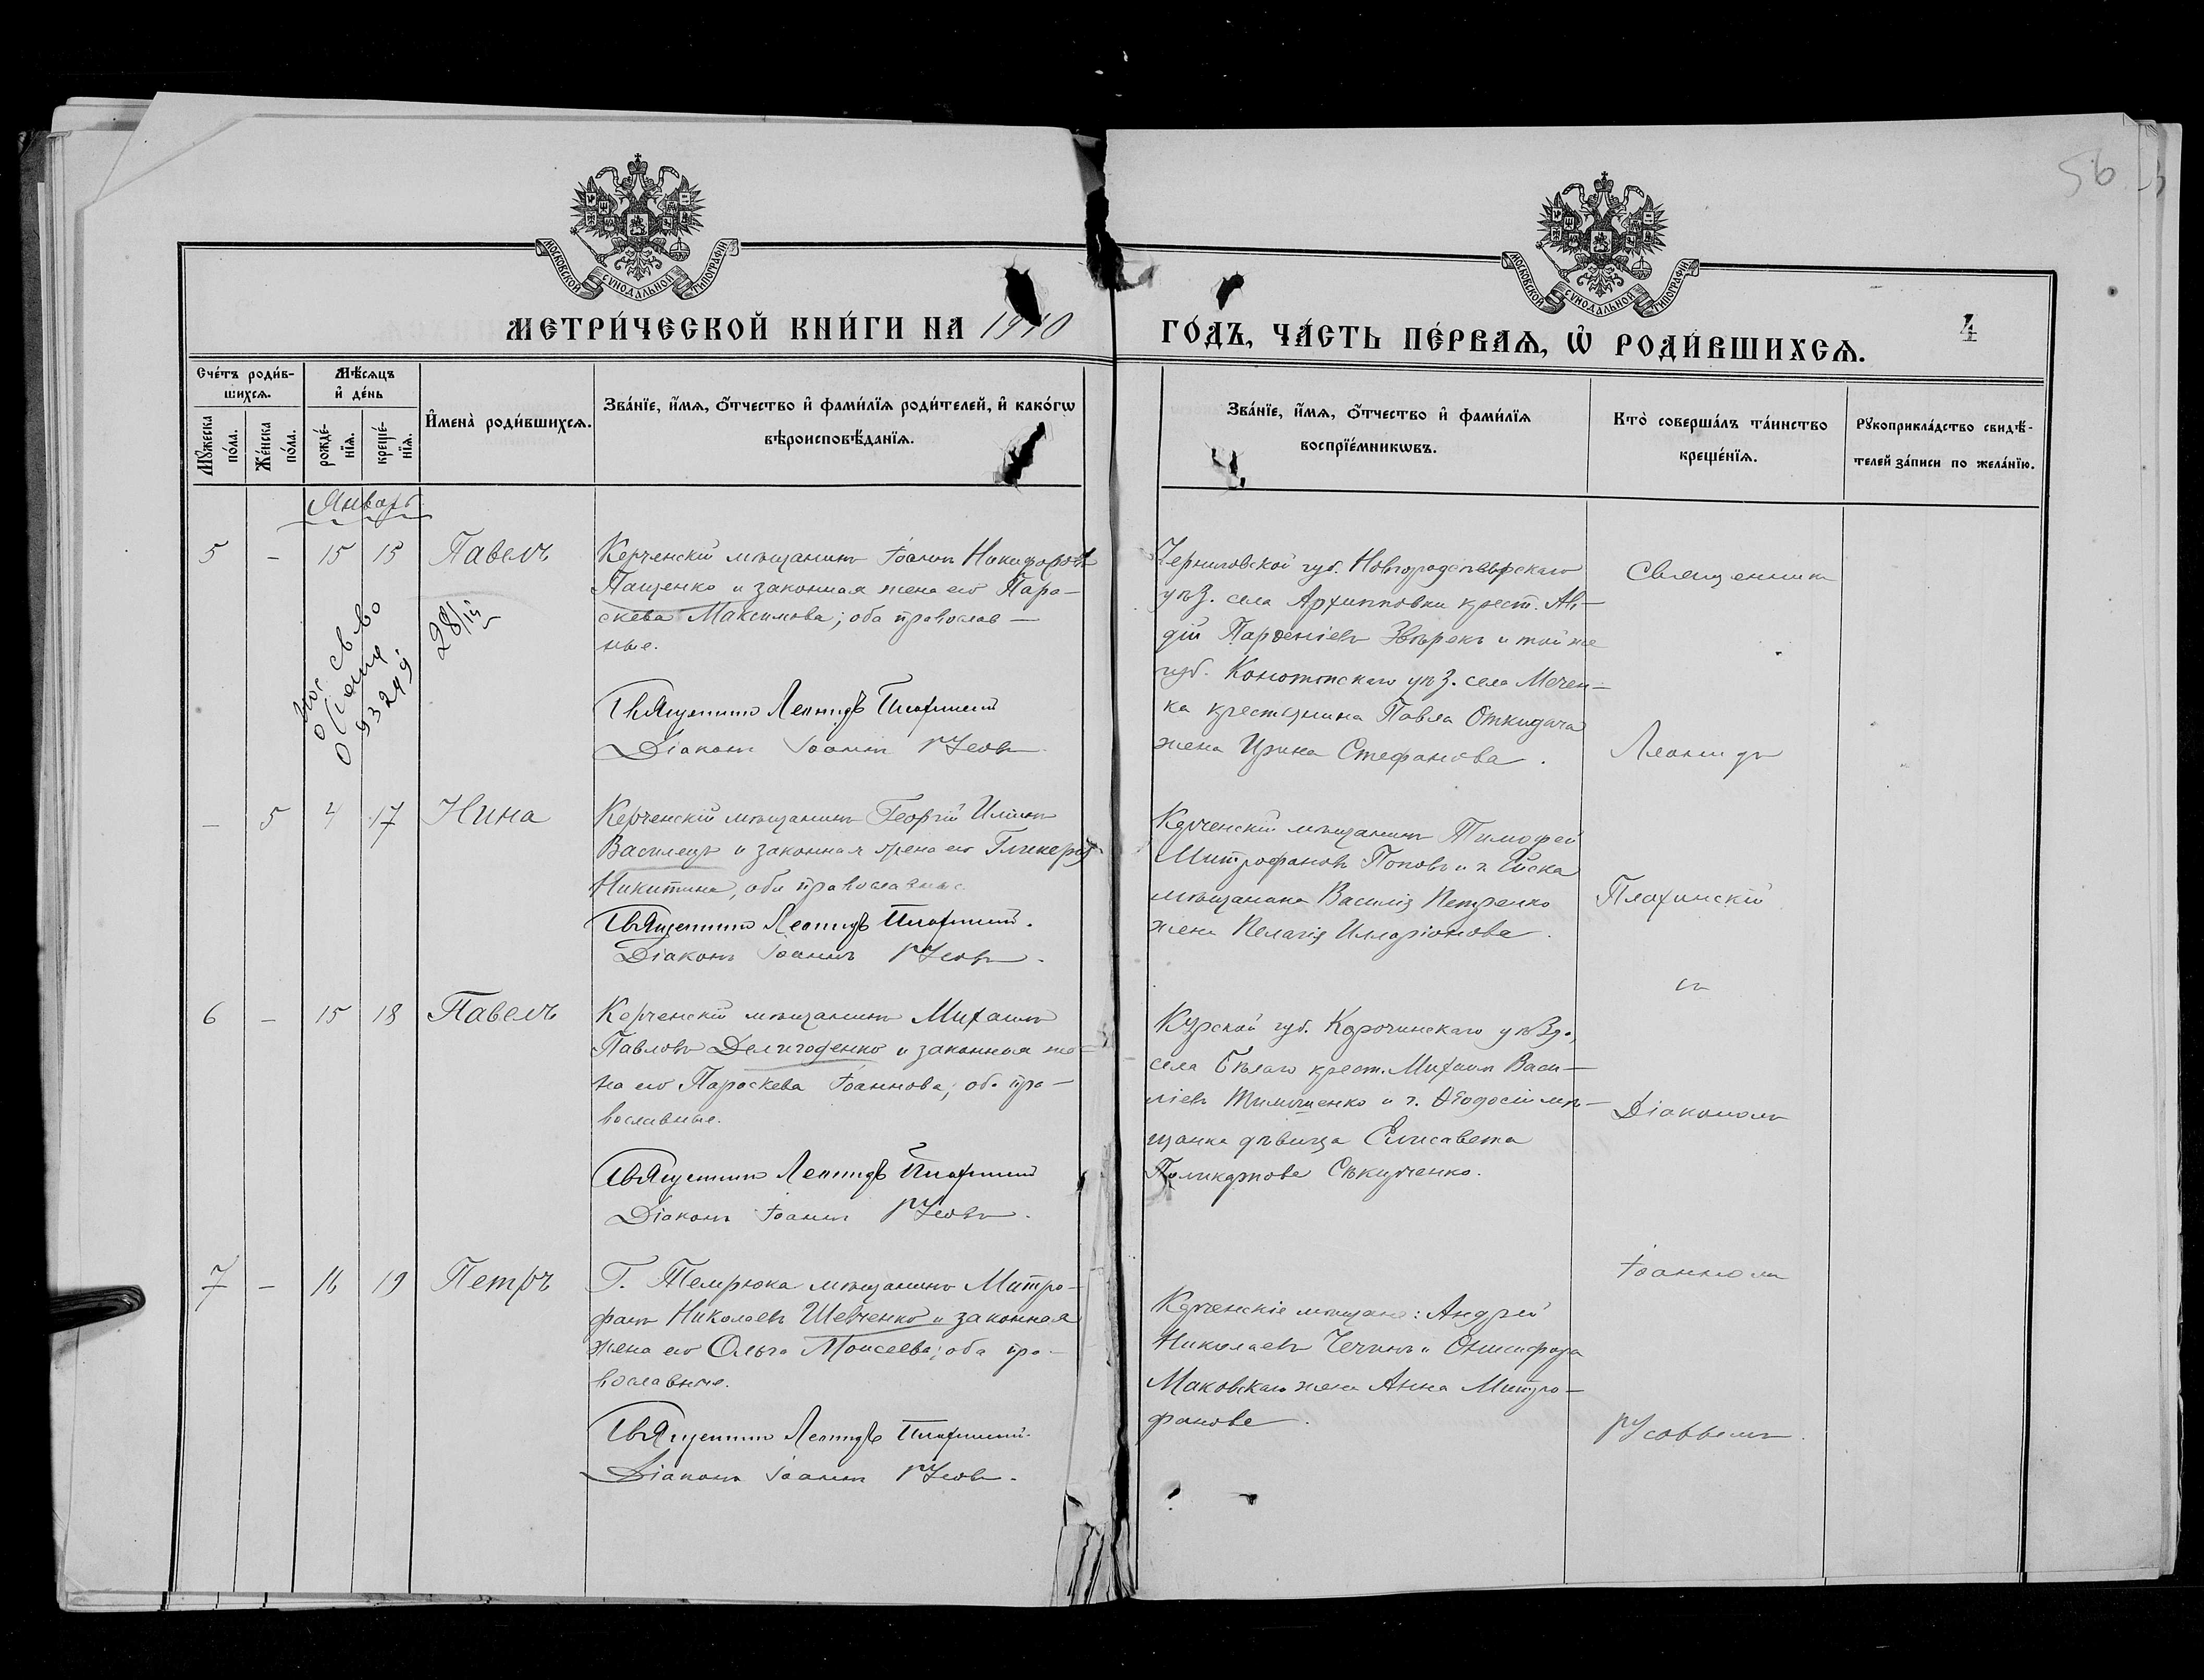 56
МОСКОВСКОЙ СѴНОДАЛЬНОЙ ТИПОГРАФІИ
МОСКОВСКОЙ СѴНОДАЛЬНОЙ ТИПОГРАФІИ
МЕТРИ́ЧЕСКОЙ КНИ́ГИ НА 1910
ГО́ДЪ, ЧА́СТЬ ПЕ́РВАѦ, Ѡ҆ РОДИ́ВШИХСѦ.
4
Сче́тъ роди́в-
шихсѧ.
Мꙋ́жеска по́ла.
Же́нска по́ла.
Мѣ́сѧцъ
и҆ де́нь
рожде́-
нїѧ.
креще́-
нїѧ.
И҆мена̀ роди́вшихсѧ.
Зва́нїе, и҆́мѧ, ѻ҆́тчество и҆ фами́лїѧ роди́телей, и҆ како́гѡ
вѣроисповѣ́данїѧ.
Зва́нїе, и҆́мѧ, ѻ҆́тчество и҆ фами́лїѧ
воспрїе́мникѡвъ.
Кто̀ соверша́лъ та́инство
креще́нїѧ.
Рꙋкоприкла́дство свидѣ́-
телей за́писи по жела́нїю.
Январь
5 – 15 15 Павелъ
Керченскій мѣщанинъ Іоаннъ Никифоровъ
Пащенко и законная жена его Пара-
скева Максимова; оба православ-
ные.
28/III
93249
Священникъ Леонидъ Плахинскій
Діаконъ Іоаннъ Русовъ
Черниговской губ. Новгородсѣверскаго
уѣз. села Архиповки крест. Ав-
дій Парѳеніевъ Звѣрекъ и той же
губ. Конотопскаго уѣз. села Мечен-
ка крестьянина Павла Откидача
жена Ирина Стефанова.
Священникъ
Леонидъ
– 5 4 17 Нина
Керченскій мѣщанинъ Георгій Иліинъ
Василецъ и законная жена его Гликерія
Никитина, оба православные.
Священникъ Леонидъ Плахинскій.
Діаконъ Іоаннъ Русовъ.
Керченскій мѣщанинъ Тимофей
Митрофановъ Поповъ и г. Ейска
мѣщанина Василія Петренко
жена Пелагія Илларіонова.
Плахинскій
съ
6 – 15 18 Павелъ
Керченскій мѣщанинъ Михаилъ
Павловъ Делигоденко и законная же-
на его Параскева Іоаннова; оба пра-
вославные.
Священникъ Леонидъ Плахинскій
Діаконъ Іоаннъ Русовъ.
Курской губ. Корочинскаго уѣзда,
села Бѣлаго крест. Михаилъ Васи-
ліевъ Тимошенко и г. Ѳеодосіи мѣ-
щанка дѣвица Елисавета
Поликарпова Сѣкиренко.
Діакономъ
Іоанномъ
7 – 16 19 Петръ
Г. Темрюка мѣщанинъ Митро-
фанъ Николаевъ Шевченко и законная
жена его Ольга Моисеева; оба пра-
вославные.
Священникъ Леонидъ Плахинскій.
Діаконъ Іоаннъ Русовъ.
Керченскіе мѣщане: Андрей
Николаевъ Чечинъ и Онисифора
Маковскаго жена Анна Митро-
фанова.
Русовымъ.